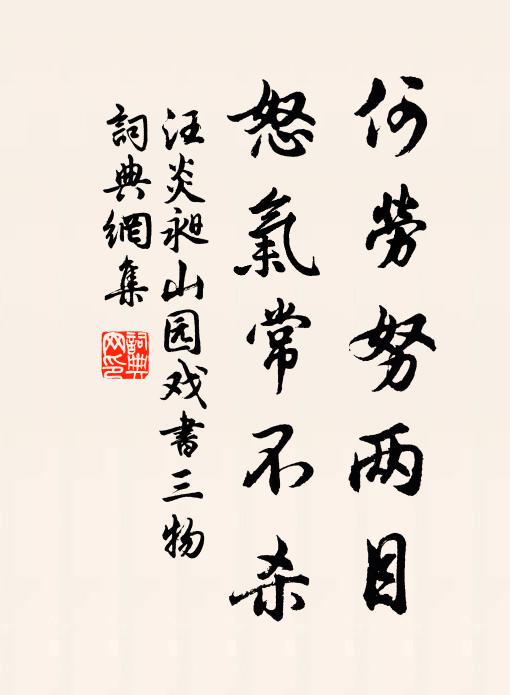 何劳努两目
怒氣常不杀
汪炎昶山园戏書三物
詞典網集
詞典网印